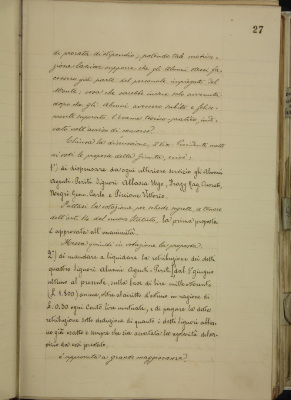 27
di sovrata di stipendio; potendo tale motiva-
zione lasciar supporre che gli Alunni stessi fa-
cessero già parte del personale impiegati del
Monte; cosa che sarebbe invece solo avvenuta
dopo che gli Alunni avessero subito e felice-
mente superato l'esame teorico-pratico, indi-
cato nell'avviso di concorso?
Chiusa la discussione, il Sig. Presidente mette
ai voti le proposte della Giunta, cioè:
1°) di dispensare da ogni ulteriore servizio gli Alunni
Aspiranti Periti Signori Allasia Ugo, Rag.
Negri Giov. Carlo e Perione Vittorio.
Fattasi la votazione per schede segrete, a tenore
dell'art. del nuovo Statuto, la prima proposta
è approvata all'unanimità.
Messa quindi in votazione la proposta:
2°) di mandare a liquidare la retribuzione dei detti
quattro Signori Alunni dal 1° giugno
ultimo al presente, sulla base di lire mille ottocento
(£ 1.800) annue, oltre al diritto d'estimo in ragione di
£ 0.30 ogni cento lire mutuate, e di pagare la detta
retribuzione sotto deduzione di quanto i detti Signori abbia-
no già esatto e sempre che sia accertata la regolarità del ser-
vizio da essi prestato.
è approvata a grande maggioranza.